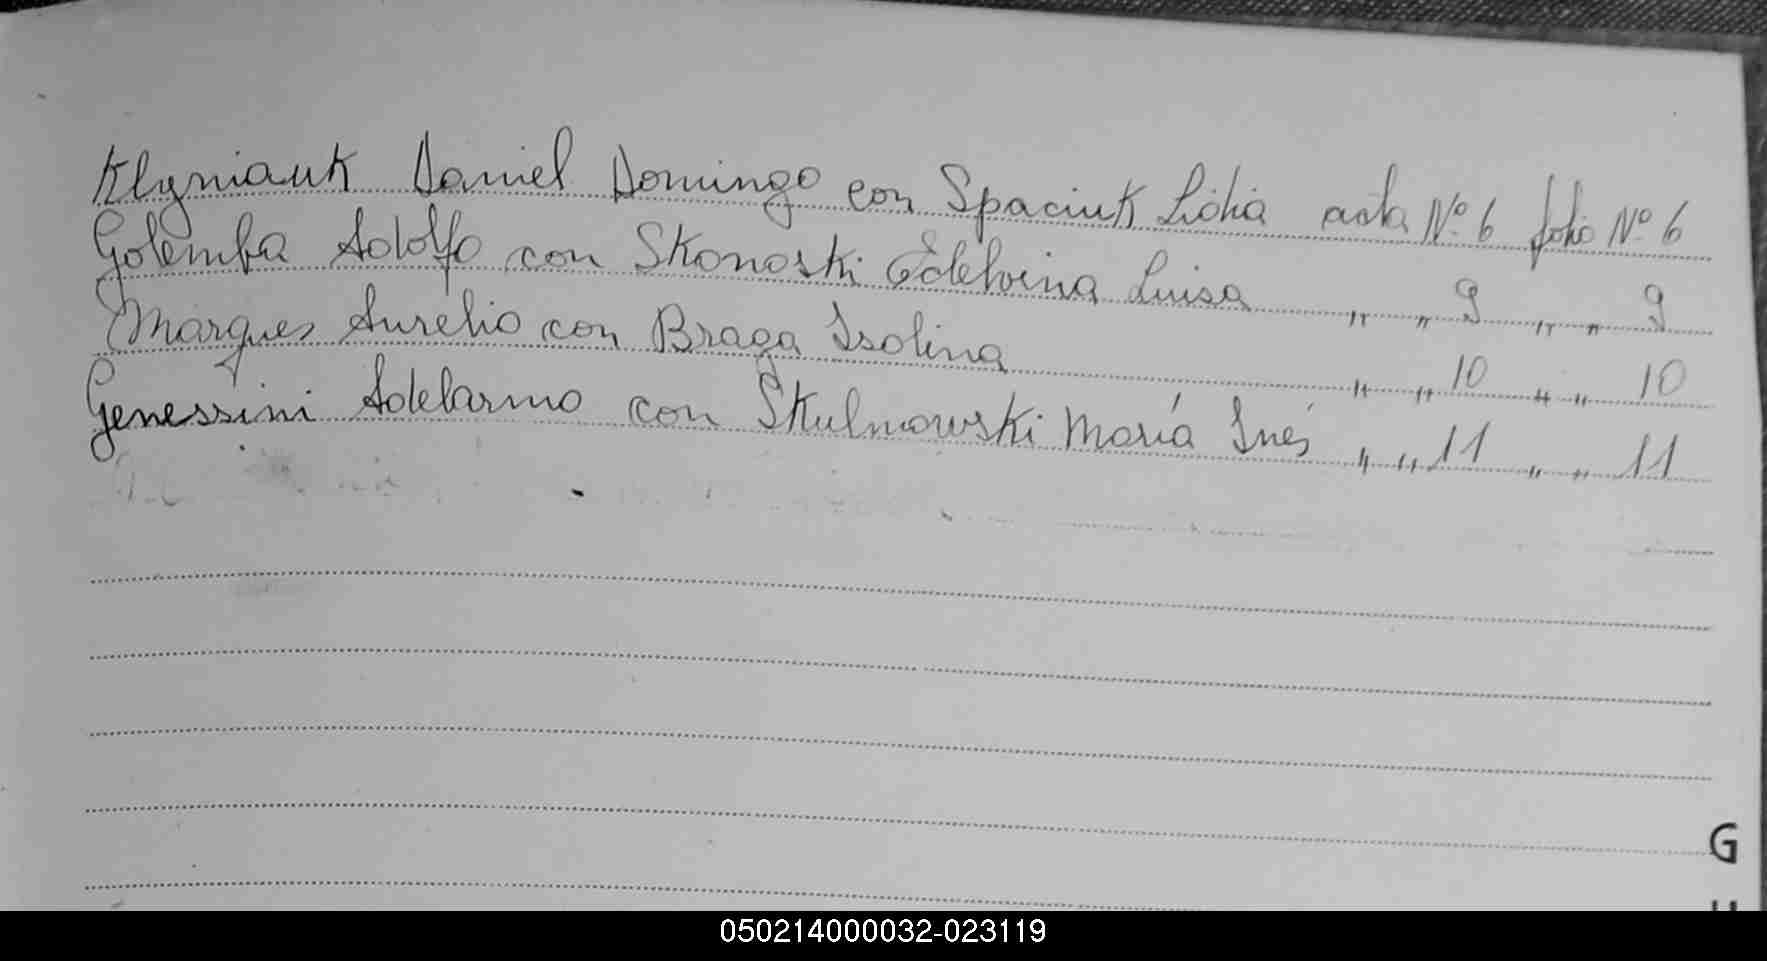 Klyniauk Daniel Domingo con Spaciuk Lidia acta Nº 6 folio Nº 6
Golemba Adolfo con Skonoski Edelvina Luisa " " 9 " " 9
Marques Aurelio con Braga Isolina " " 10 " " 10
Genessini Adelarmo con Skulmowski María Inés " " 11 " " 11
G
050214000032-023119